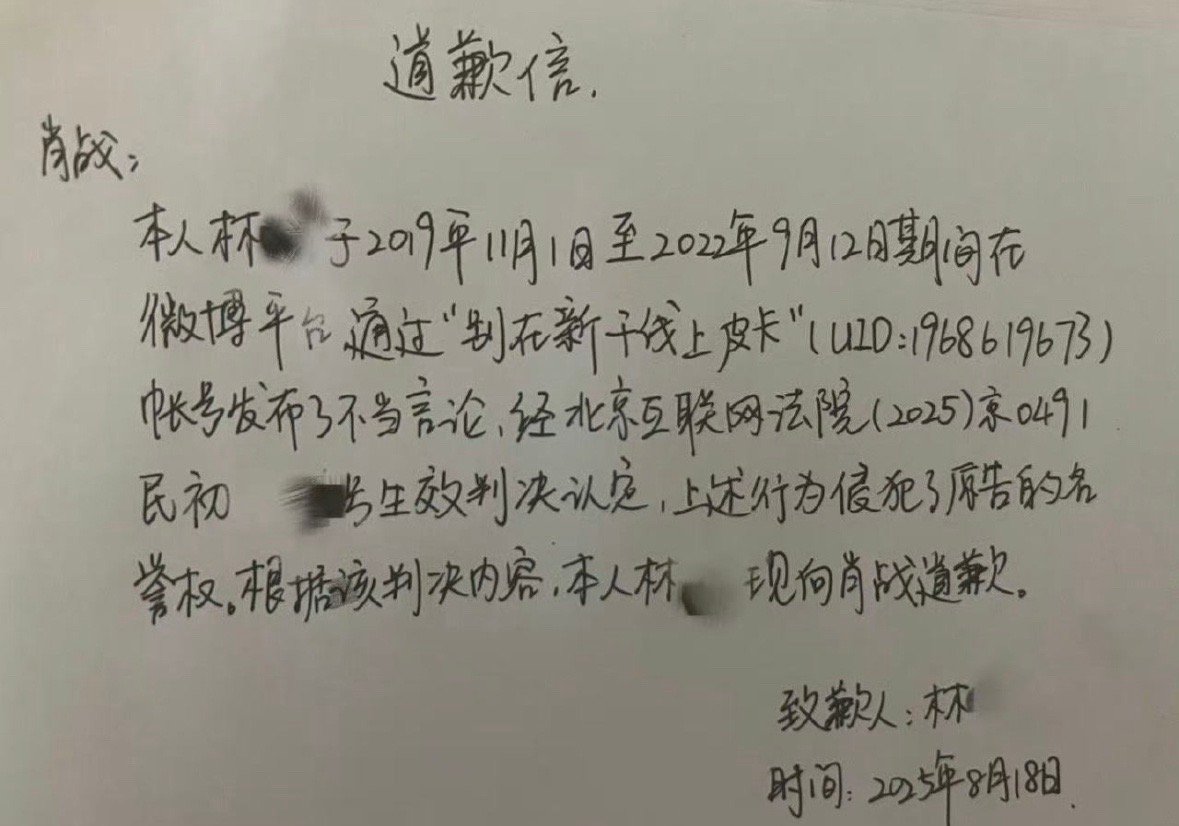 道歉信.
肖战:
本人林 于2019年11月1日至2022年9月12日期间在
微博平台通过"别在新干线上皮卡"(UID:1968619673)
帐号发布了不当言论,经北京互联网法院(2025)京0491
民初 号生效判决认定,上述行为侵犯了原告的名
誉权。根据该判决内容,本人林 现向肖战道歉。
致歉人:林
时间:2025年8月18日.